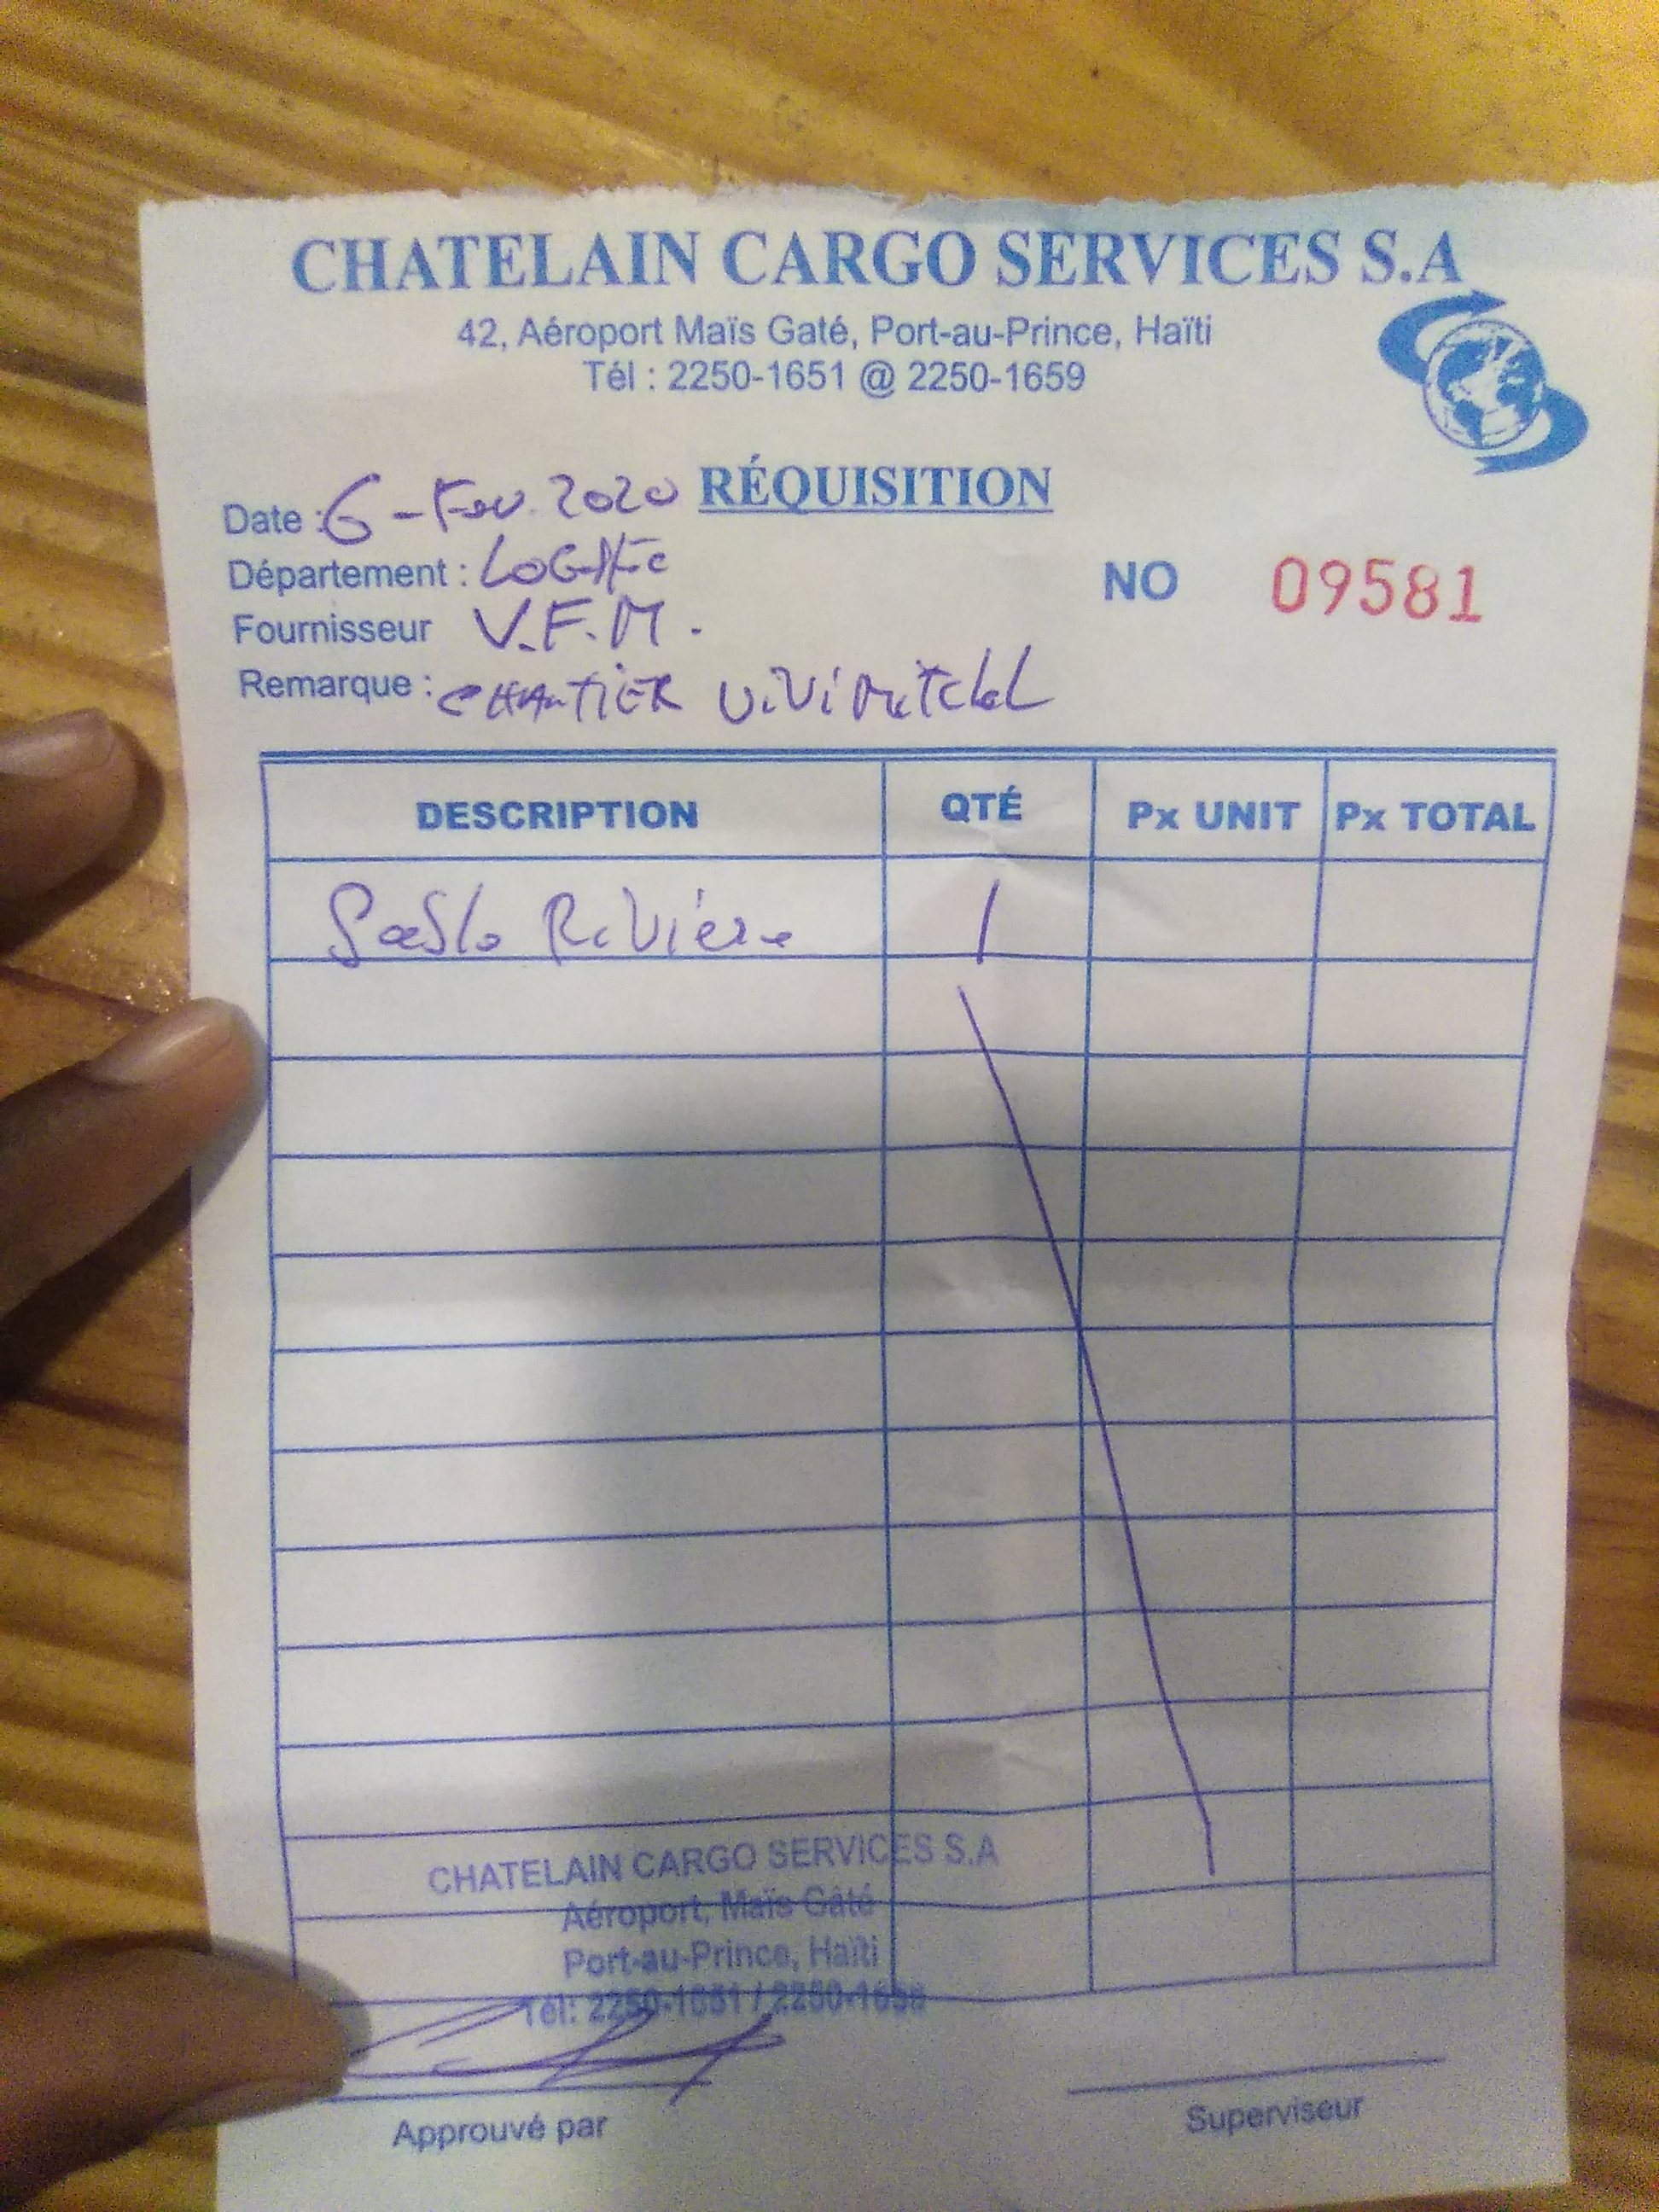 CHATELAIN CARGO SERVICES S.A
42, Aéroport Maïs Gaté, Port-au-Prince, Haïti
Tél : 2250-1651 @ 2250-1659
RÉQUISITION
Date : 6-Fev. 2020
Département :
NO 09581
Fournisseur V.F.M.
Remarque : CHANTIER ViVi MitcheL
DESCRIPTION QTÉ Px UNIT Px TOTAL
Rivière 1
CHATELAIN CARGO SERVICES S.A
Aéroport, Maïs Gâté
Port-au-Prince, Haïti
Tél: 2250-1651 /
Approuvé par
Superviseur